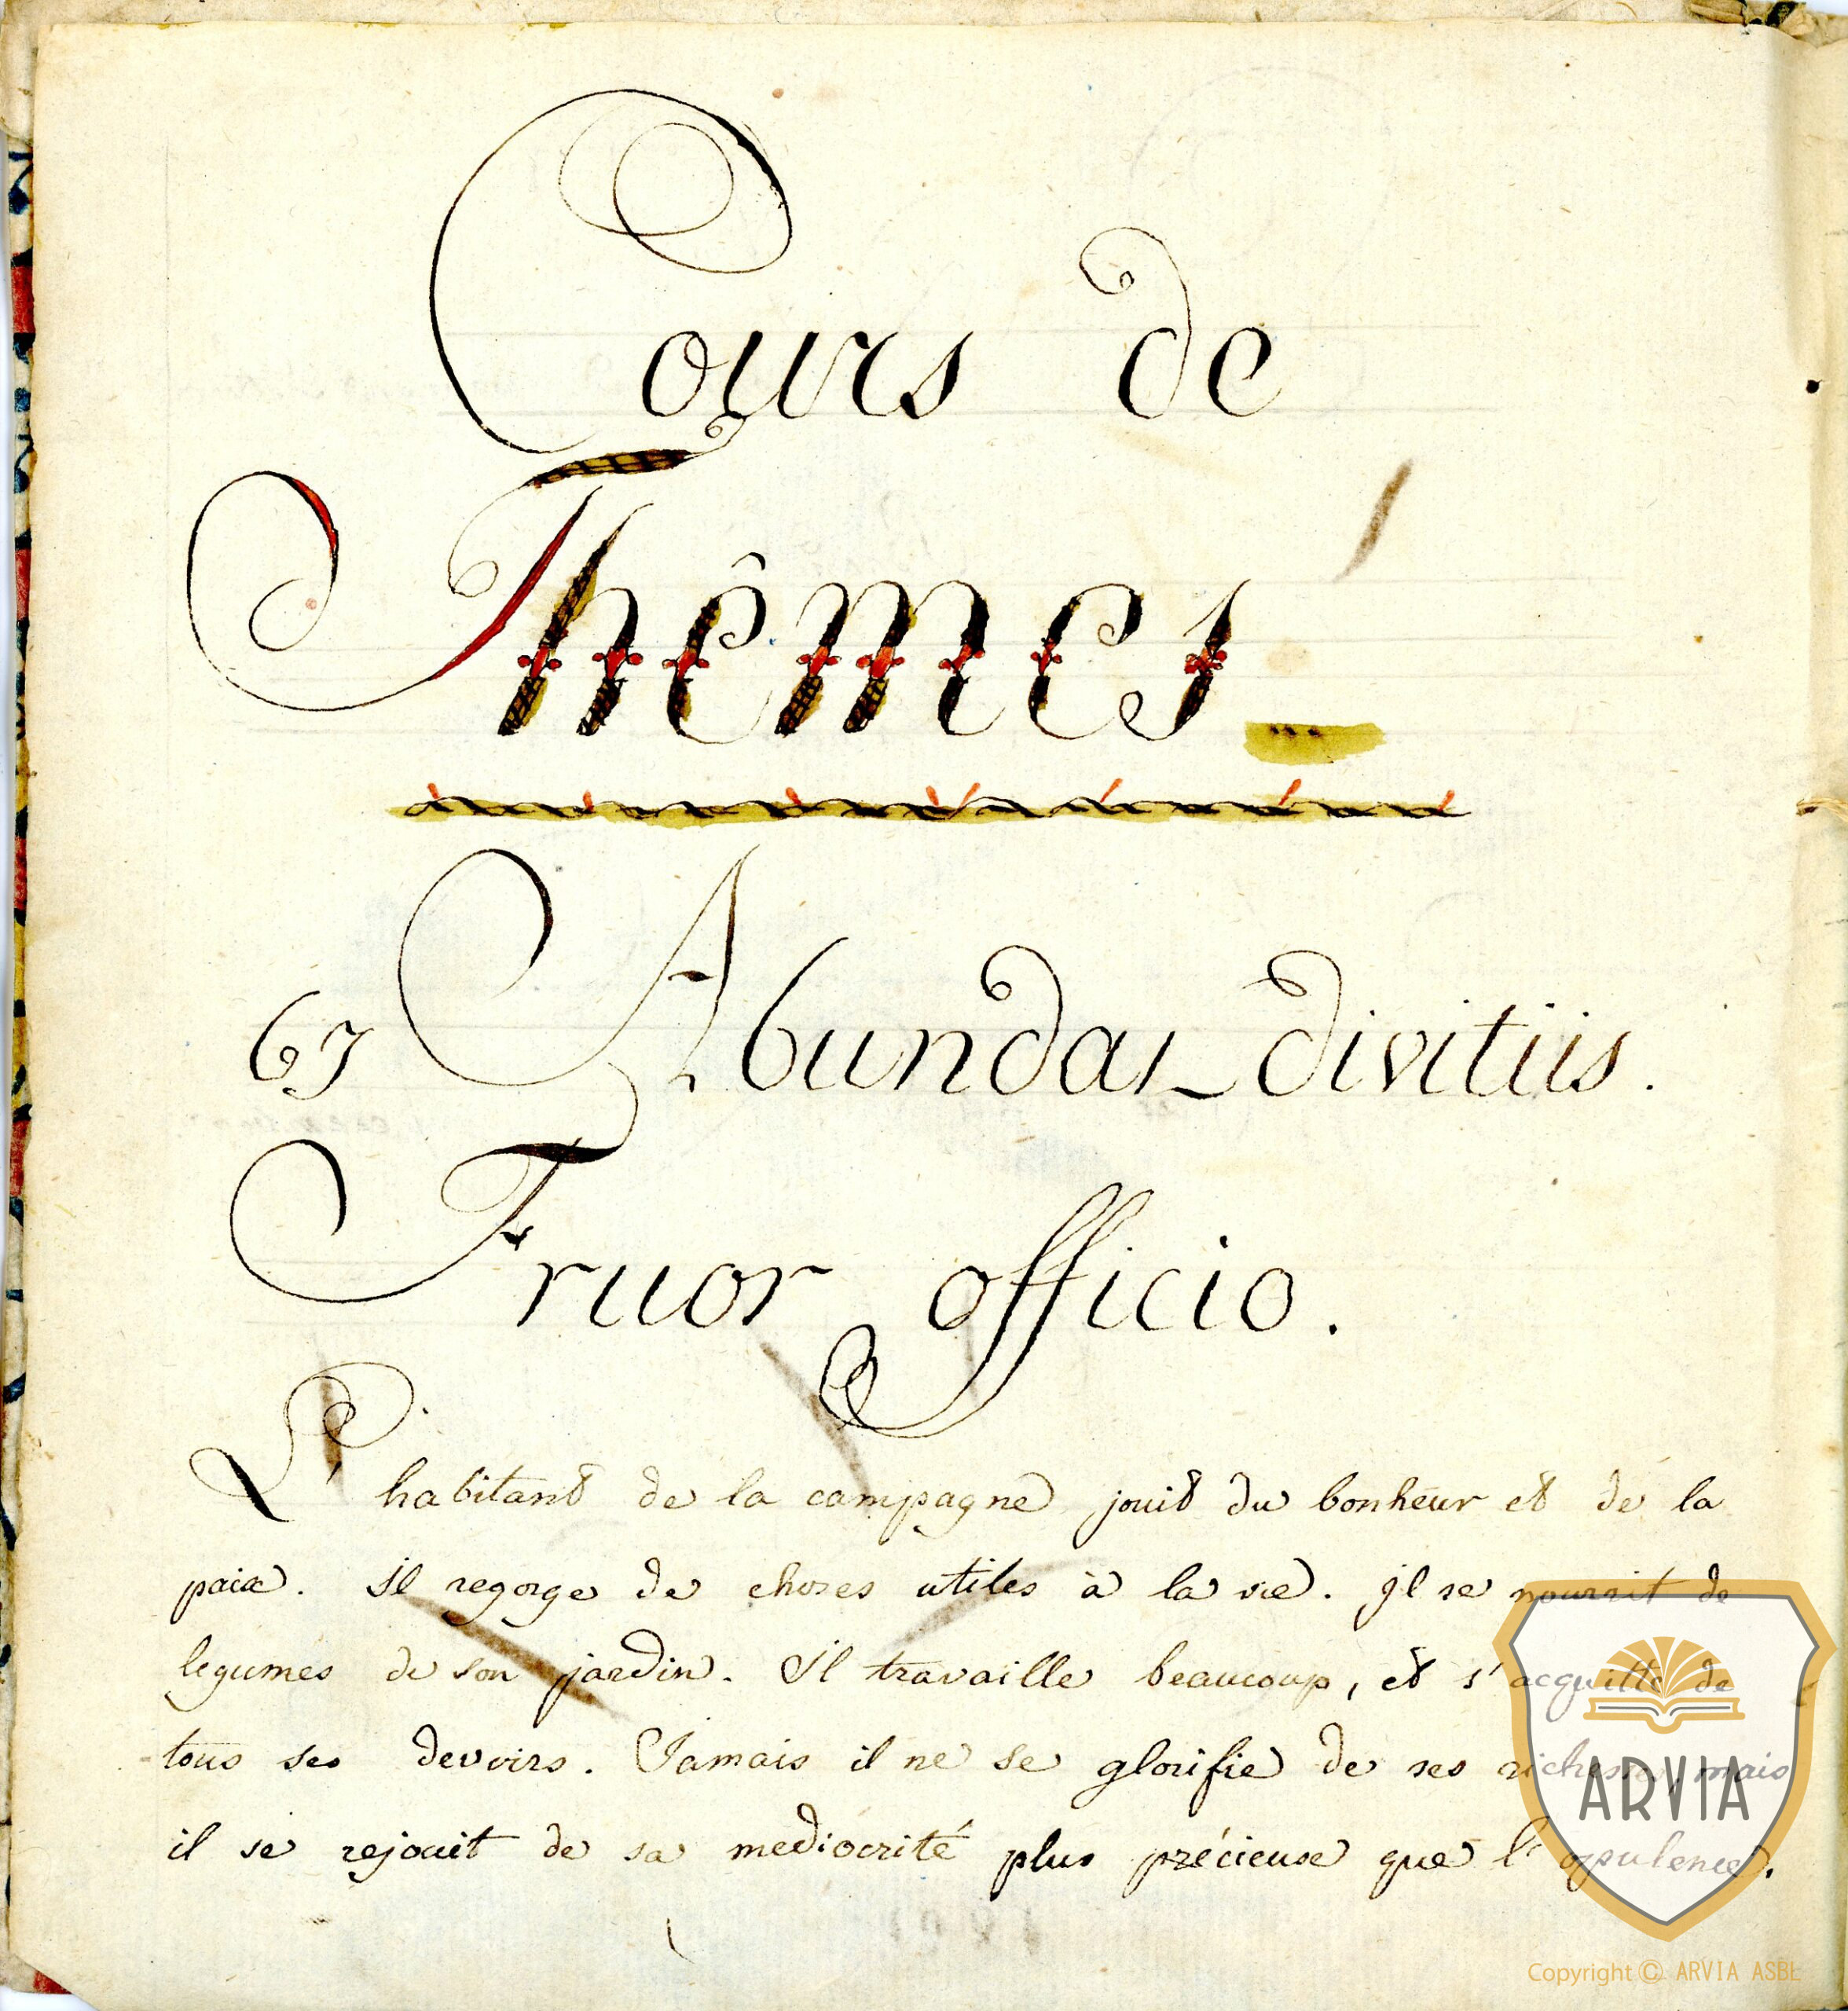 Cours de
Thêmes
67 Abundat divitiis.
Fruor officio.
L'habitant de la campagne jouit du bonheur et de la
paix. il regorge de choses utiles à la vie. il se nourrit de
legumes de son jardin. il travaille beaucoup, et s'acquitte de
tous ses devoirs. Jamais il ne se glorifie de ses richesses, mais
il se rejouit de sa mediocrité plus précieuse que l'opulence.
ARVIA
Copyright © ARVIA ASBL